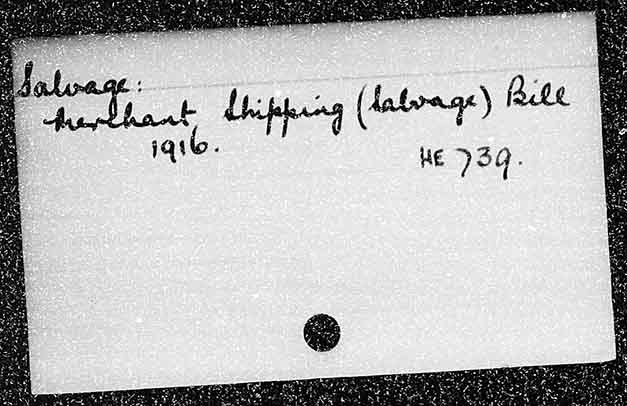 Salvage:
Merchant Shipping (Salvage) Bill
1916.
HE 739.